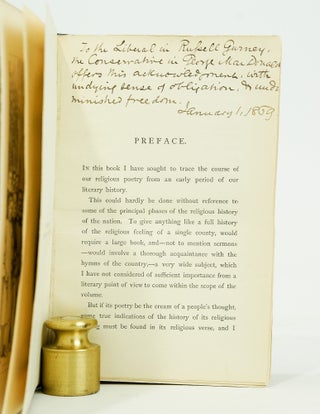 To the Liberal in Russell Gurney,
the Conservative in George MacDonald
offers this acknowledgment, with
undying sense of obligation, & undi-
minished freedom.
January 1, 1869
PREFACE.
IN this book I have sought to trace the course of
our religious poetry from an early period of our
literary history.
This could hardly be done without reference to
some of the principal phases of the religious history
of the nation. To give anything like a full history
of the religious feeling of a single county, would
require a large book, and—not to mention sermons
—would involve a thorough acquaintance with the
hymns of the country,—a very wide subject, which
I have not considered of sufficient importance from a
literary point of view to come within the scope of the
volume.
But if its poetry be the cream of a people's thought,
some true indications of the history of its religious
must be found in its religious verse, and I